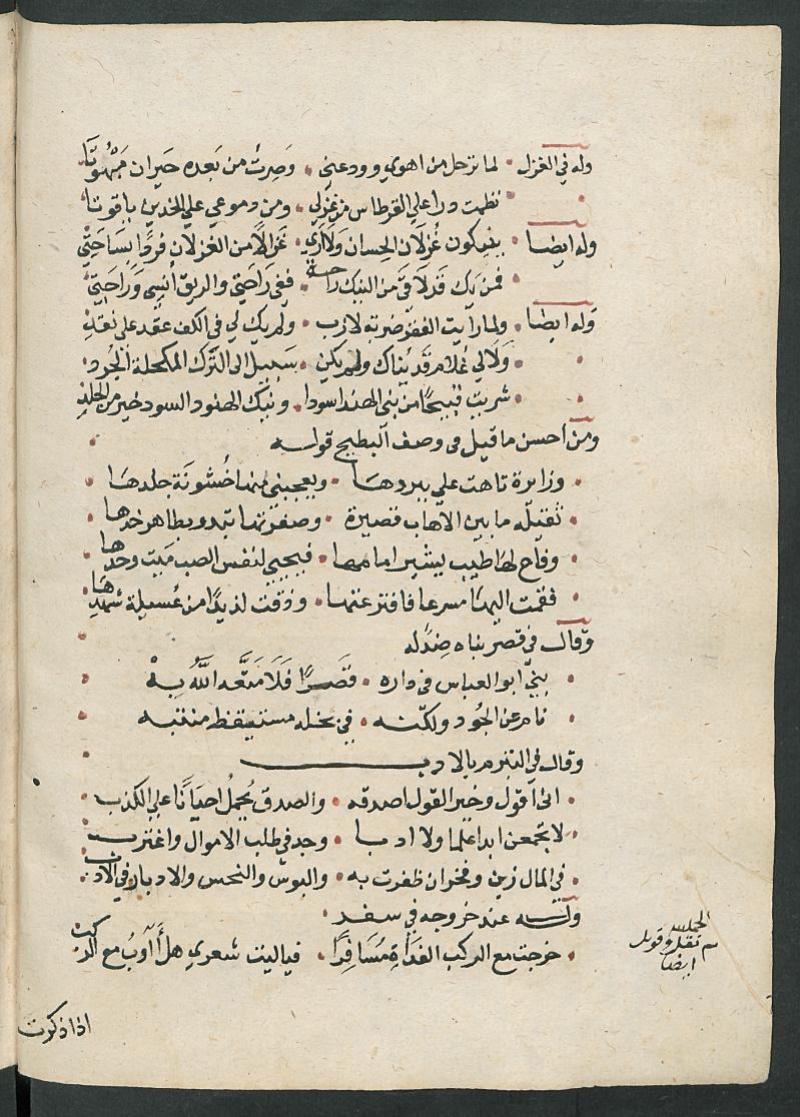 وله في الغزل • لما ترحل من اهوي وودعني • وَصِرتُ من بَعده حَيران مَبْهُوتَا
نظمت درا علي القرطاس من غزلي • ومن دموعي علي الخدين ياقوتا
وله ايضا • بغيكون غُزلان الحِسان وَلَا اَرَي • غزالًا من الغزلان فردًا بسَاحَتِي
• فمن يك قد لاقَى من النيك راحة • ففي رَاحَتِي والريق أُنسِي وَرَاحَتِي
وَله ايضا • ولما رأيت الفقر ضربة لازب • ولم يك لي في الكف عقد على نقد
• وَلَا لي غلام قد يُناك ولم يكن • سَبيل الى التُرك المكحلة الجُرد
• شريت قبيحًا من بني الهند اسودا • ونيك الهنود السود خير من الجلد
ومن احسن ما قيل فى وصف البطيخ قوله
• وزايرة تاهت علي ببردهَا • ويعجبني منها خُشونَة جلدهَا
• ثقيلة ما بين الاهاب قصيرة • وصفرتها تبدو بظاهر خدها
• وفاح لها طيب يشير امامها • فيحيي لنفس الصب مَيت وحدها
• فقمت اليهَا مسرعا فافترعتها • وذقت لذيذًا من عُسيلة شهدِهَا
وَقال في قصر بناه ضِدٌ له
• بنيَ ابو العباس فى داره • قصرًا فَلَا مَتَّعه اللَّهُ بِهْ
• نام عن الجُود ولكنّه • في بخله مستيقظ منتبه
وقال في التبرم بالادب
• انى أقول وخير القول اصدقه • والصدق يُجملُ احيَانًا علي الكذب
• لا تجمعن ابدا علما ولا ادبا • وجد في طلب الاموال واغترب
• في المال زين وفخر ان ظفرت به • والبوس والنحس والادبار في الادب
وله عند خروجه في سفر •
• خرجت مع الركب الغداة مُسَافِرًا • فياليت شعري هل أَأوبُ مع الركب
الحمد لله
تم نقله وقوبل
ايضا
اذا ذكرت